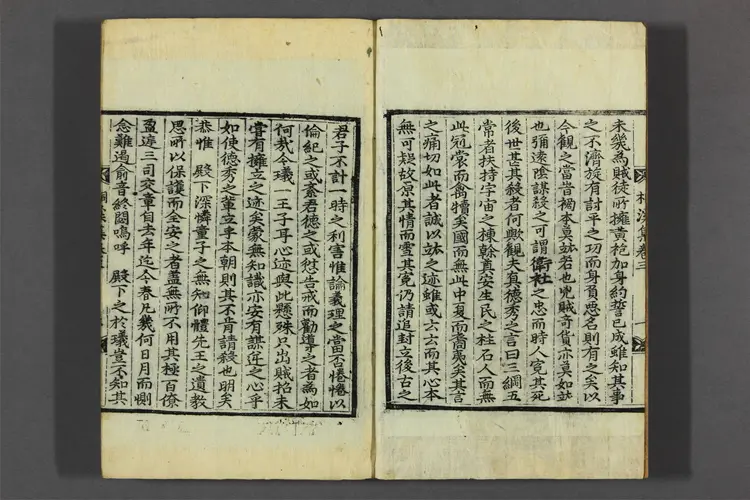 未幾爲賊徒所擁黃袍加身約誓已成雖知其事
之不濟旋有討平之功而身負惡名則有之矣以
今觀之當時禍本莫竑若也兇賊奇貨亦莫如竑
也彌遠陰謀殺之可謂衛社之忠而時人寃其死
後世甚其殺者何歟觀夫眞德秀之言曰三綱五
常者扶持宇宙之棟榦奠安生民之柱石人而無
此冠裳而禽犢矣國而無此中夏而裔夷矣其言
之痛切如此者誠以竑之迹雖或云云而其心本
無可疑故原其情而雪其寃仍請追封立後古之
桐溪集卷三
君子不計一時之利害惟論義理之當否惓惓以
倫紀之或紊君德之或愆告戒而勸導之者爲如
何哉今一王子耳心迹與此懸殊只出賊招未
嘗有擁立之迹矣蒙無知識亦安有謀逆之心乎
如使德秀之輩立乎本朝則其不肯請殺也明矣
恭惟 殿下深憐童子之無知仰體先王之遺敎
思所以保護而全安之者盡無所不用其極百僚
盈庭三司交章自去年迄今春凡幾何日月而惻
念難遏兪音終閟嗚呼 殿下之於豈不知其